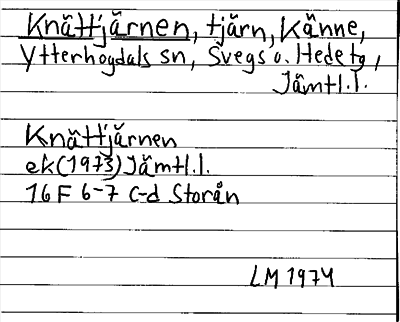 Knättjärnen, tjärn, Känne,
Ytterhogdals sn, Svegs o. Hede tg,
Jämtl.l.
Knättjärnen
ek (1973) Jämtl.l.
16 F 6-7 c-d Storån
LM 1974